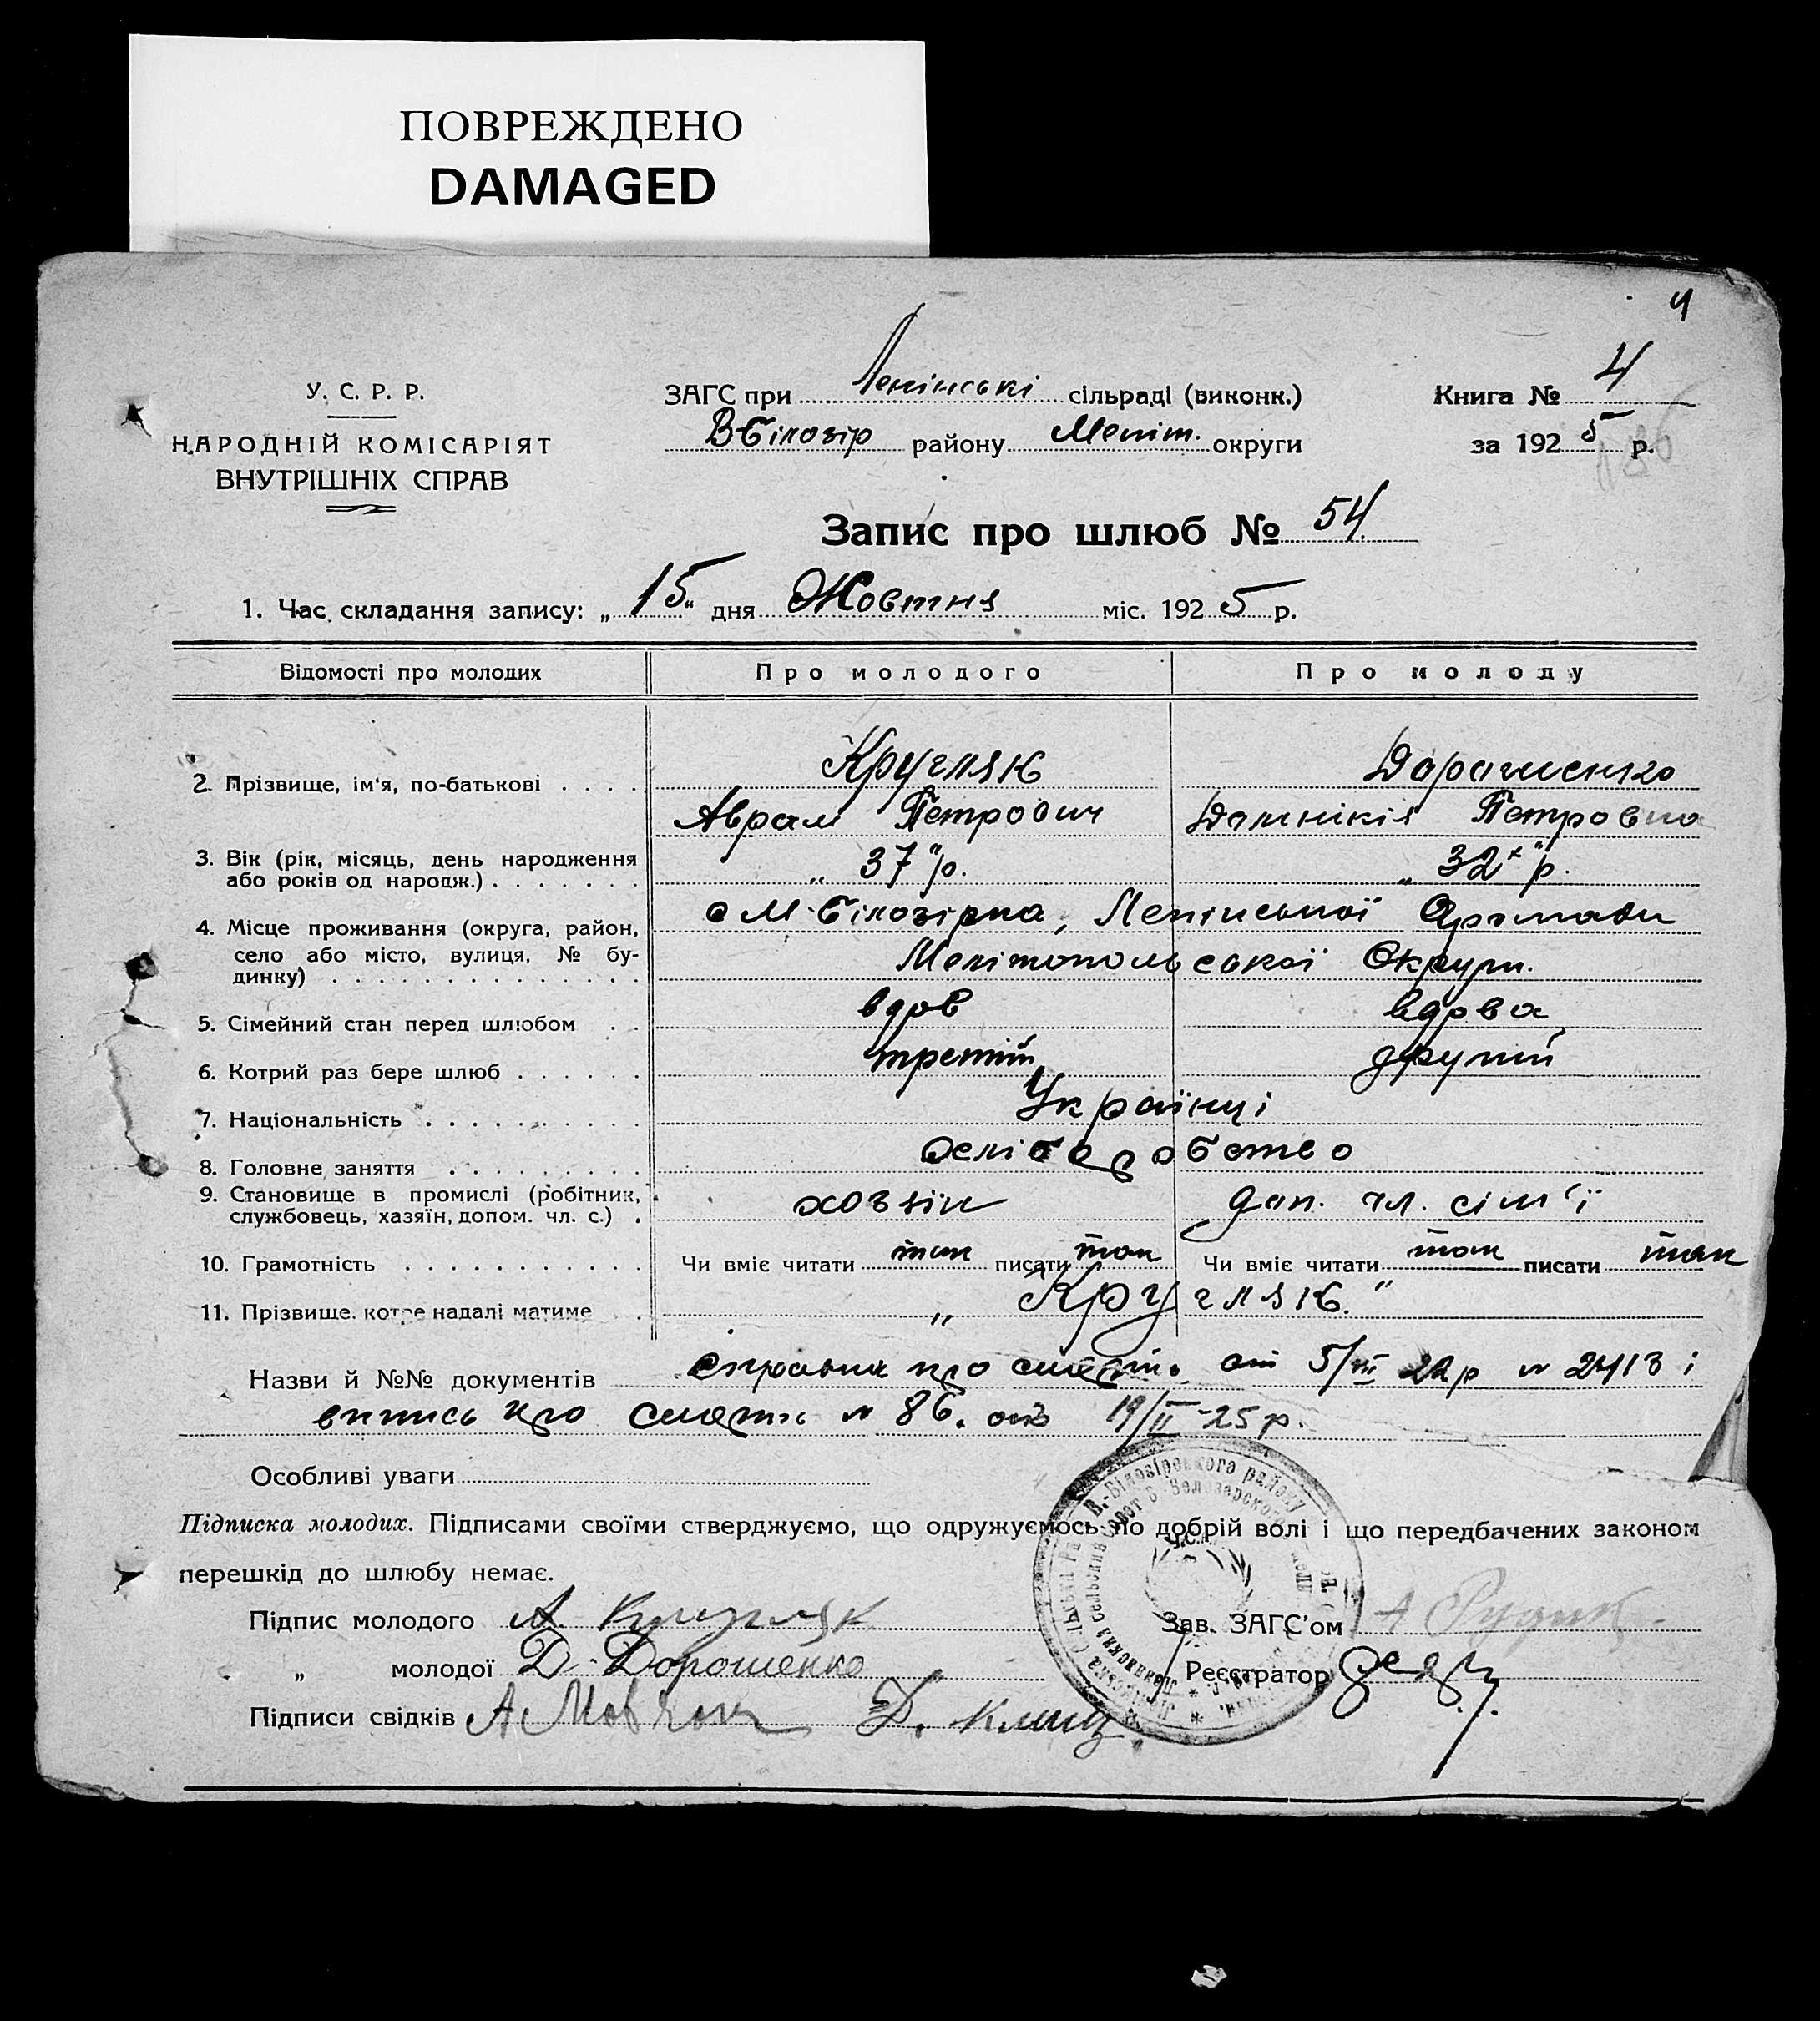 ПОВРЕЖДЕНО
DAMAGED
4
У. С. Р. Р.
НАРОДНІЙ КОМІСАРІЯТ
ВНУТРІШНІХ СПРАВ
ЗАГС при Ленінські сільраді (виконк.)
В-Білозір району Меліт. округи
Книга № 4
за 1925 р.
Запис про шлюб № 54.
1. Час складання запису: „15" дня Жовтня міс. 1925 р.
Відомості про молодих Про молодого Про молоду
2. Прізвище, ім'я, по-батькові . . . . Кругляк Дорошенко
Аврам Петрович Домнікія Петровна
3. Вік (рік, місяць, день народження „ 37 "р. „ 32 "р.
або років од народж.) . . . . . . .
4. Місце проживання (округа, район, с М-Білозірка, Ленінської Громади
село або місто, вулиця, № бу- Мелітопольської Округи.
динку) . . . . . . . . . . . . . .
5. Сімейний стан перед шлюбом . . вдов вдова
6. Котрий раз бере шлюб . . . . . . третій другий
7. Національність . . . . . . . . . . Українці
8. Головне заняття . . . . . . . . . селіборобство
9. Становище в промислі (робітник, хозяїн доп. чл. сім'ї
службовець, хазяїн, допом. чл. с.) .
10. Грамотність . . . . . . . . . . . Чи вміє читати так писати так Чи вміє читати так писати так
11. Прізвище, котре надалі матиме . „ Кругляк."
Назви й №№ документів справка про смерть от 5/III 22 р № 2413 і
витись про смерть № 86. от 19/II-25 р.
Особливі уваги
Підписка молодих. Підписами своїми стверджуємо, що одружуємось по добрій волі і що передбачених законом
перешкід до шлюбу немає.
Підпис молодого А. Кругляк Зав. ЗАГС'ом А
„ молодої Д. Дорошенко Реєстратор
Підписи свідків А Мовчан Д. Клищ
В.-Білозірського району